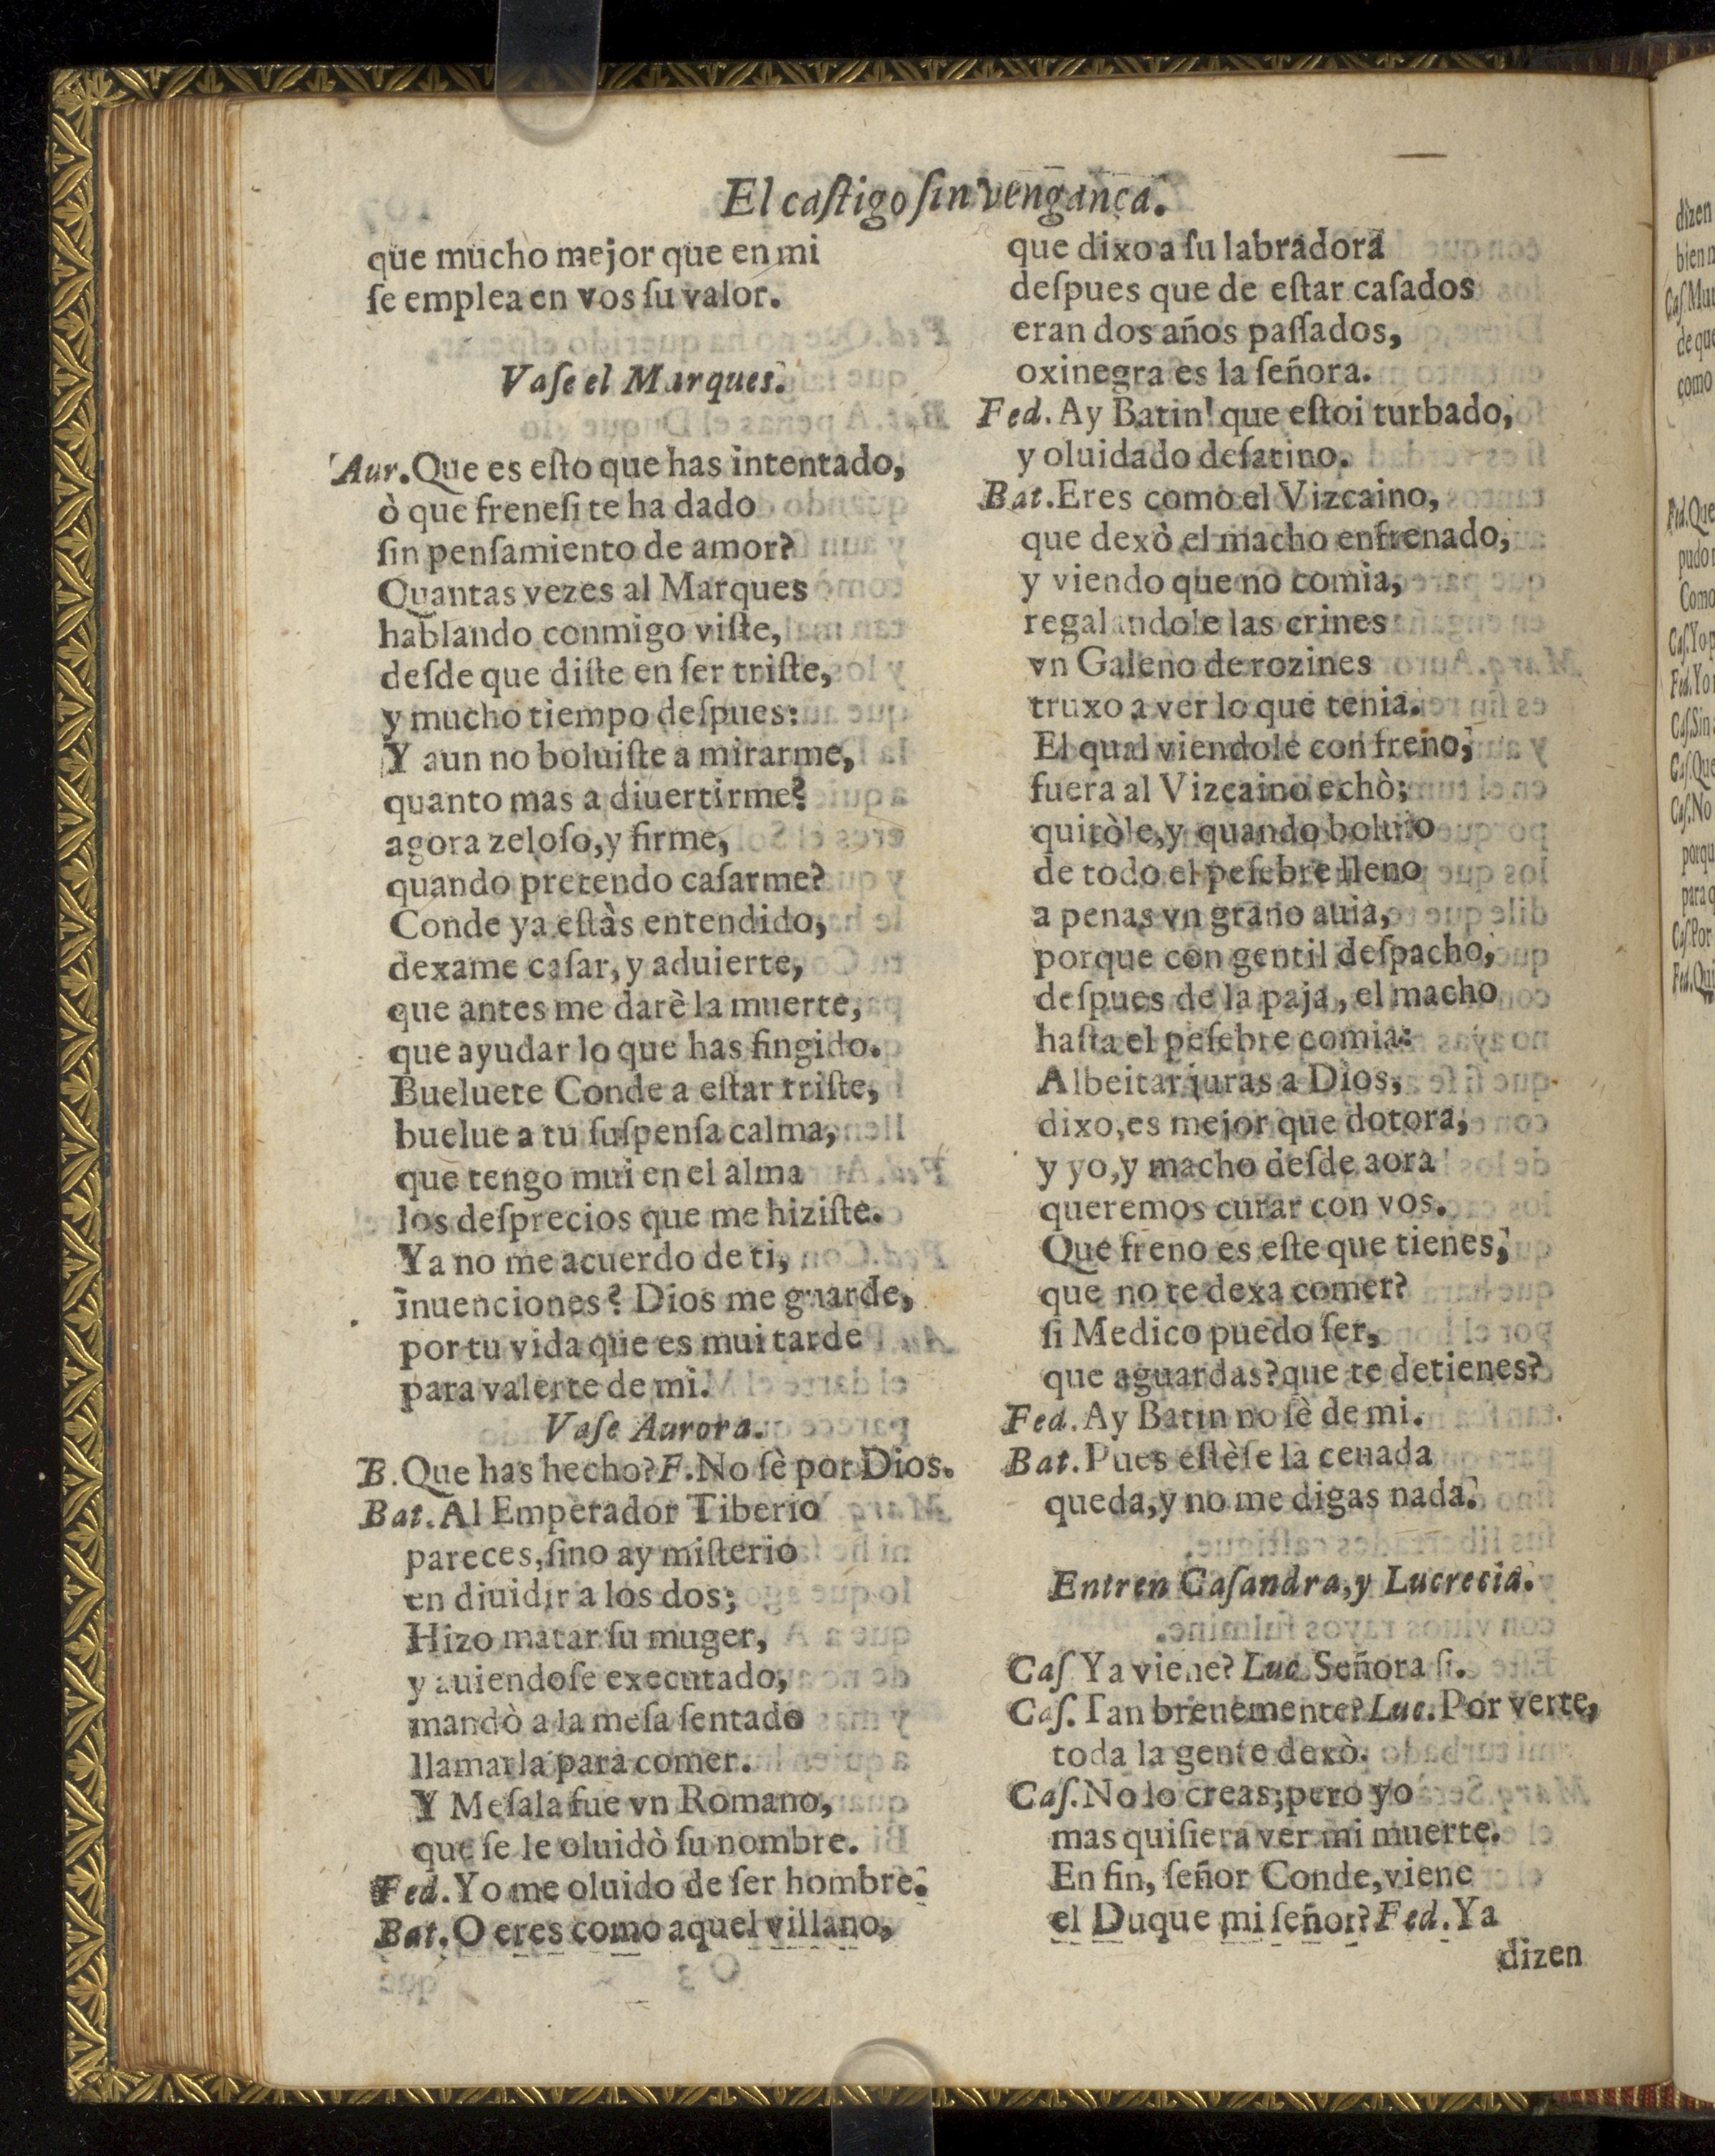 El caſtigo ſin vengança.
que mucho mejor que en mi
ſe emplea en vos ſu valor.
Vaſe el Marques.
Aur. Que es eſto que has intentado,
ò que freneſi te ha dado
ſin penſamiento de amor?
Quantas vezes al Marques
hablando conmigo viſte,
deſde que diſte en ſer triſte,
y mucho tiempo deſpues:
Y aun no boluiſte a mirarme,
quanto mas a diuertirme?
agora zeloſo, y firme,
quando pretendo caſarme?
Conde ya eſtàs entendido,
dexame caſar, y aduierte,
que antes me darè la muerte,
que ayudar lo que has fingido.
Bueluete Conde a eſtar triſte,
buelue a tu ſuſpenſa calma,
que tengo mui en el alma
los deſprecios que me hiziſte.
Ya no me acuerdo de ti,
inuenciones? Dios me guarde,
por tu vida que es mui tarde
para valerte de mi.
Vaſe Aurora.
B. Que has hecho? F. No ſè por Dios.
Bat. Al Emperador Tiberio
pareces, ſino ay miſterio
en diuidir a los dos;
Hizo matar ſu muger,
y auiendoſe executado,
mandò a la meſa ſentado
llamarla para comer.
Y Meſala fue vn Romano,
que ſe le oluidò ſu nombre.
Fed. Yo me oluido de ſer hombre.
Bat. O eres como aquel villano,
que dixo a ſu labradora
deſpues que de eſtar caſados
eran dos años paſſados,
oxinegra es la ſeñora.
Fed. Ay Batin! que eſtoi turbado,
y oluidado deſatino.
Bat. Eres como el Vizcaino,
que dexò el macho enfrenado,
y viendo que no comia,
regalandole las crines
vn Galeno de rozines
truxo a ver lo que tenia.
El qual viendole con freno,
fuera al Vizcaino echò;
quitòle, y quando boluio
de todo el peſebre lleno
a penas vn grano auia,
porque con gentil deſpacho,
deſpues de la paja, el macho
haſta el peſebre comia:
Albeitar juras a Dios,
dixo, es mejor que dotora,
y yo, y macho deſde aora
queremos curar con vos.
Que freno es eſte que tienes,
que no te dexa comer?
ſi Medico puedo ſer,
que aguardas? que te detienes?
Fed. Ay Batin no ſè de mi.
Bat. Pues eſtèſe la ceuada
queda, y no me digas nada.
Entren Caſandra, y Lucrecia.
Caſ Ya viene? Luc. Señora ſi.
Caſ. Tan breuemente? Luc. Por verte,
toda la gente dexò.
Caſ. No lo creas; pero yo
mas quiſiera ver mi muerte.
En fin, ſeñor Conde, viene
el Duque mi ſeñor? Fed. Ya
dizen
dizen
bien
Caſ. Mu
de que
como
Fed. Que
pudo
Como
Caſ. Yo p
Fed. Yo
Caſ. Sin
Caſ. Que
Caſ. No
porqu
para q
Caſ. Por
Fed. Qui